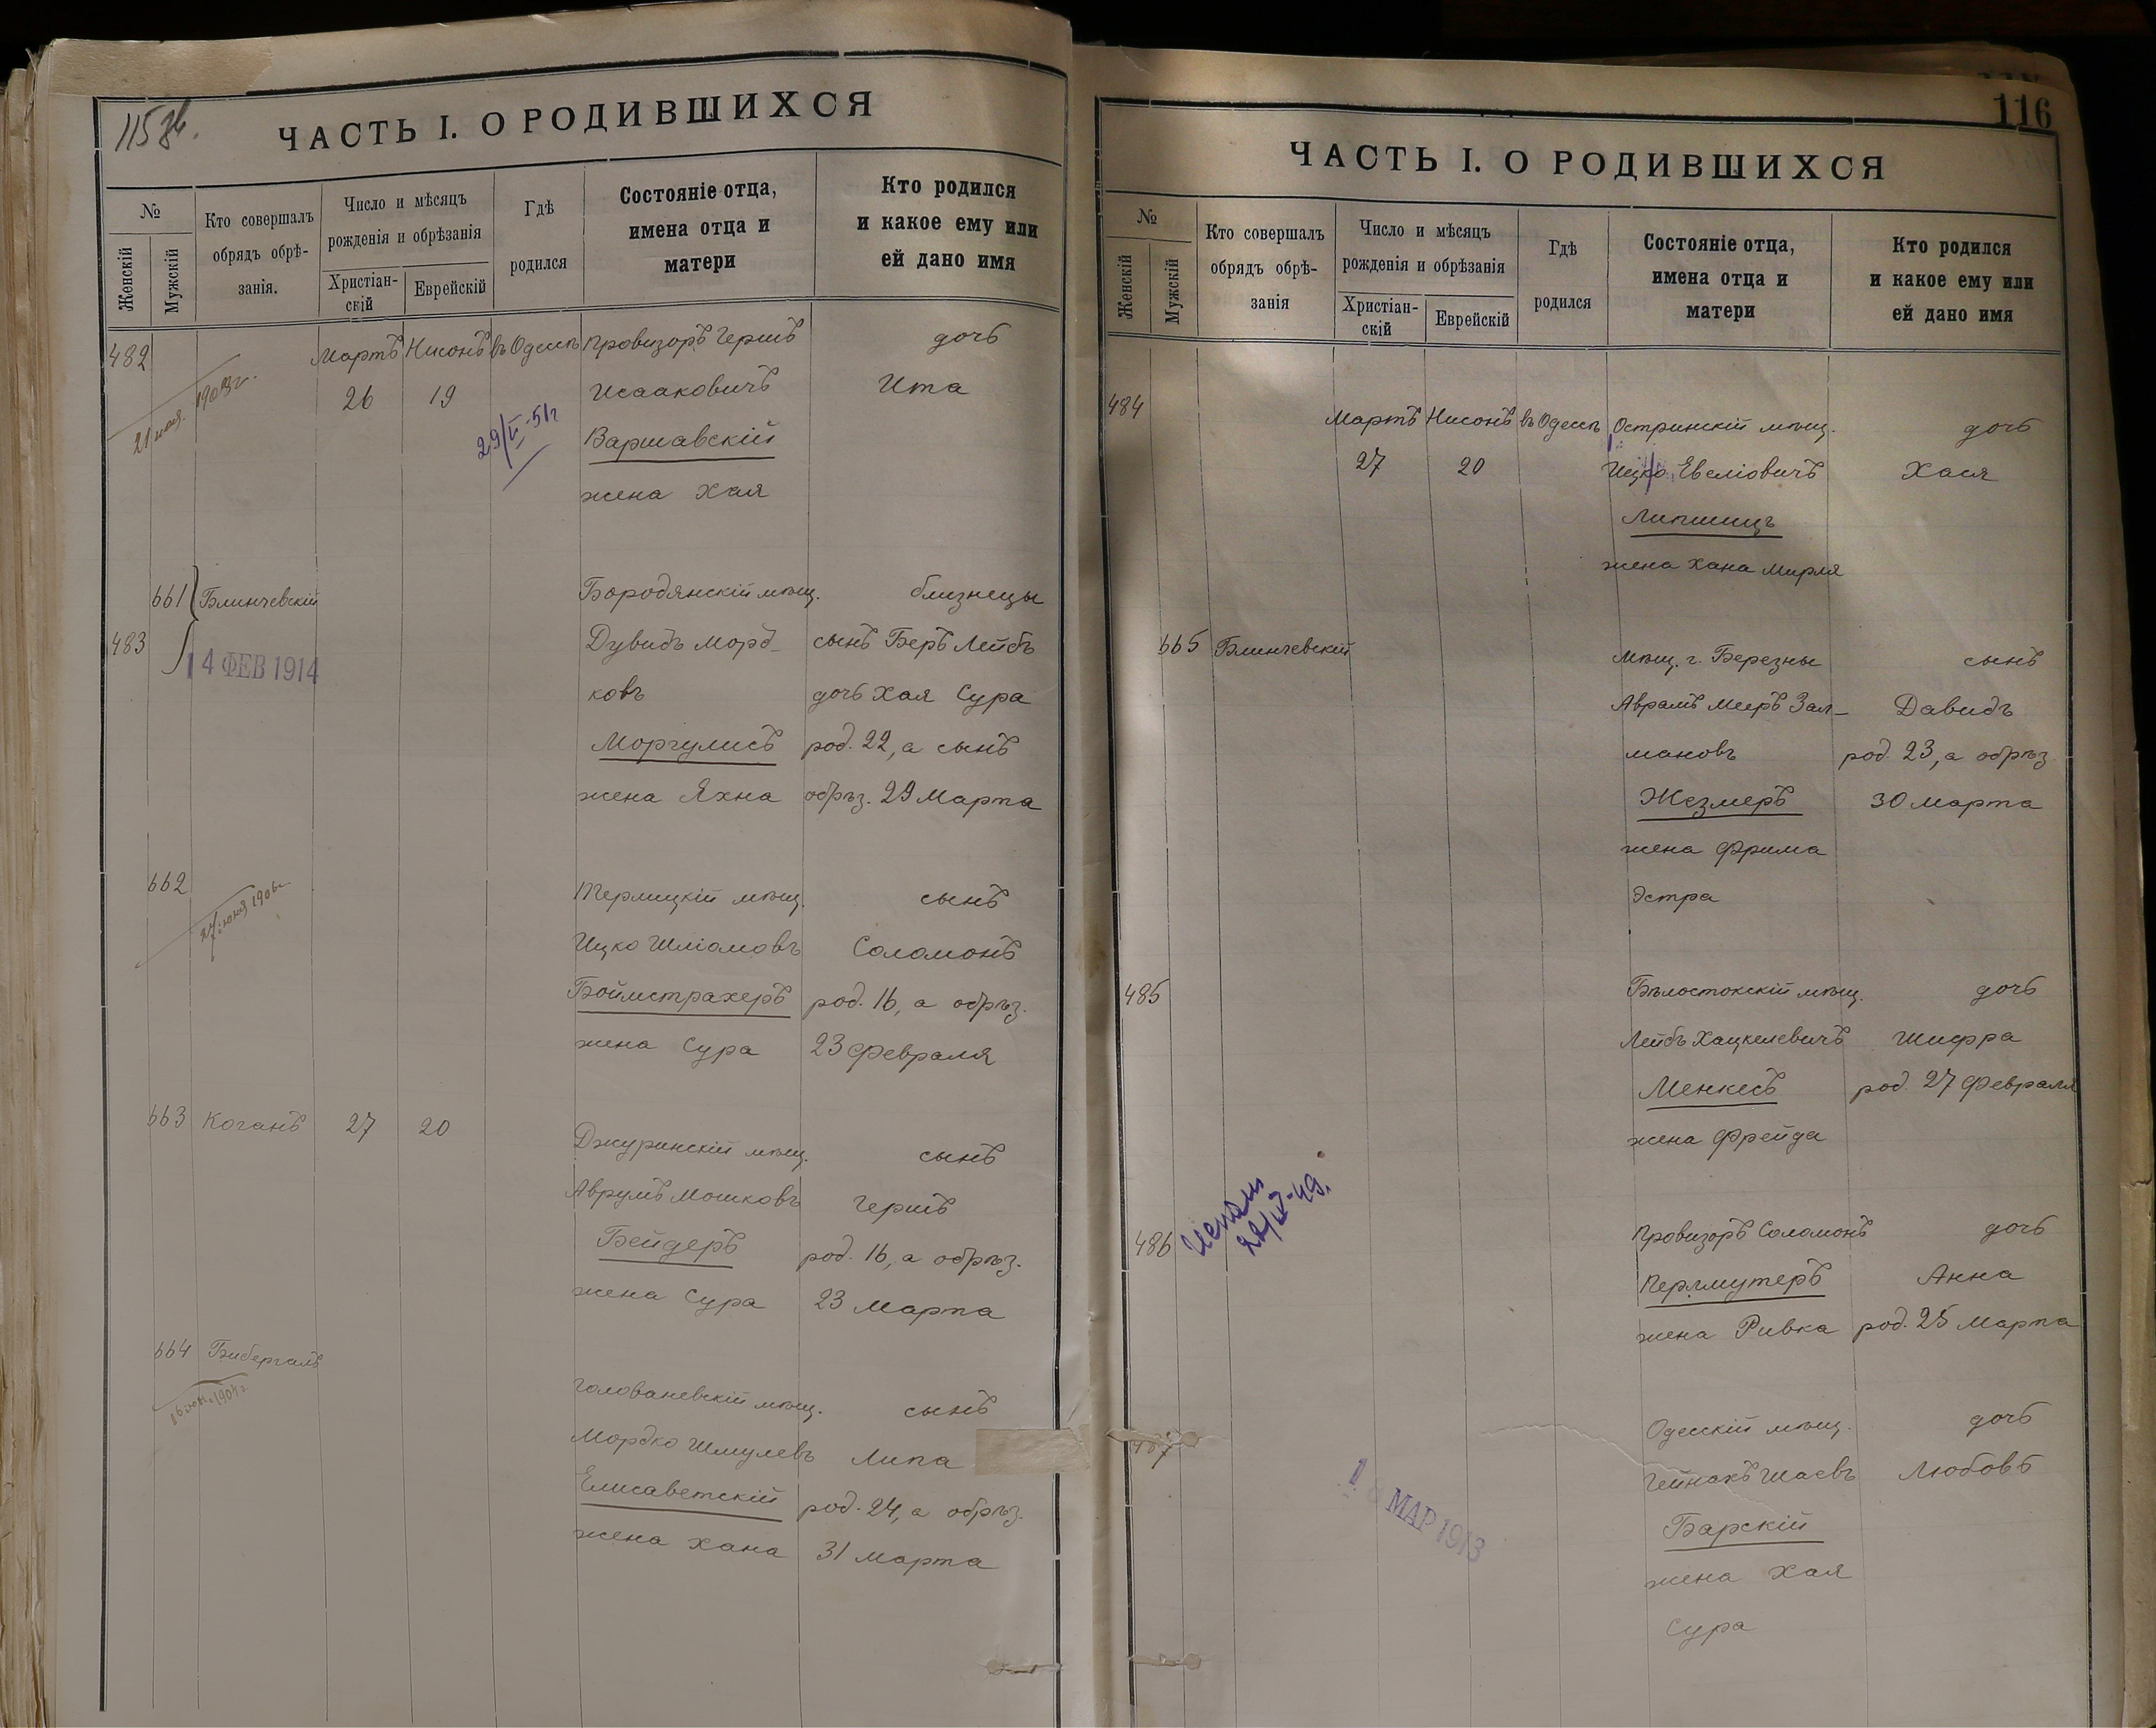 115
ЧАСТЬ I. О РОДИВШИХСЯ
№
Женскій
Мужскій
Кто совершалъ
обрядъ обрѣ-
занія.
Число и мѣсяцъ
рожденія и обрѣзанія
Христіан-
скій
Еврейскій
Гдѣ
родился
Состояніе отца,
имена отца и
матери
Кто родился
и какое ему или
ей дано имя
482 Мартъ Нисонъ въ Одессѣ Провизоръ Гершъ дочь
26 19 Исааковичъ Ита
Варшавскій
жена Хая
1903г.
29/VI-51г
661 Блинчевскій Бородянскій мѣщ. близнецы
483 Дувидъ Морд- сынъ Беръ Лейбъ
14 ФЕВ 1914
ковъ дочь Хая Сура
Моргулисъ род. 22, а сынъ
жена Яхна обрѣз. 29 Марта
662 Терлицкій мѣщ. сынъ
Ицко Шліомовъ Соломонъ
Боймстрахеръ род. 16, а обрѣз.
жена Сура 23 Февраля
663 Коганъ 27 20 Джуринскій мѣщ. сынъ
Аврумъ Мошковъ Гершъ
Бейдеръ род. 16, а обрѣз.
жена Сура 23 Марта
664 Бибергалъ Голованевскій мѣщ. сынъ
Мордко Шмулевъ Липа
Елисаветскій род. 24, а обрѣз.
жена Хана 31 Марта
116
ЧАСТЬ I. О РОДИВШИХСЯ
№
Женскій
Мужскій
Кто совершалъ
обрядъ обрѣ-
занія
Число и мѣсяцъ
рожденія и обрѣзанія
Христіан-
скій
Еврейскій
Гдѣ
родился
Состояніе отца,
имена отца и
матери
Кто родился
и какое ему или
ей дано имя
484 Мартъ Нисонъ въ Одессѣ Остринскій мѣщ. дочь
27 20 Ицко Евеліовичъ Хася
Липшицъ
жена Хана Мирля
665 Блинчевскій Мѣщ. г. Березны сынъ
Аврамъ Мееръ Зал- Давидъ
мановъ род. 23, а обрѣз.
Жезмеръ 30 Марта
жена Фрима
Эстра
485 Бѣлостокскій мѣщ. дочь
Лейбъ Хацкелевичъ Шифра
Менкесъ род. 27 Февраля
жена Фрейда
486 Провизоръ Соломонъ дочь
Перлмутеръ Анна
жена Ривка род. 25 Марта
487 Одесскій мѣщ. дочь
Гейнахъ Шаевъ Любовь
МАР 1913
Барскій
жена Хая
Сура